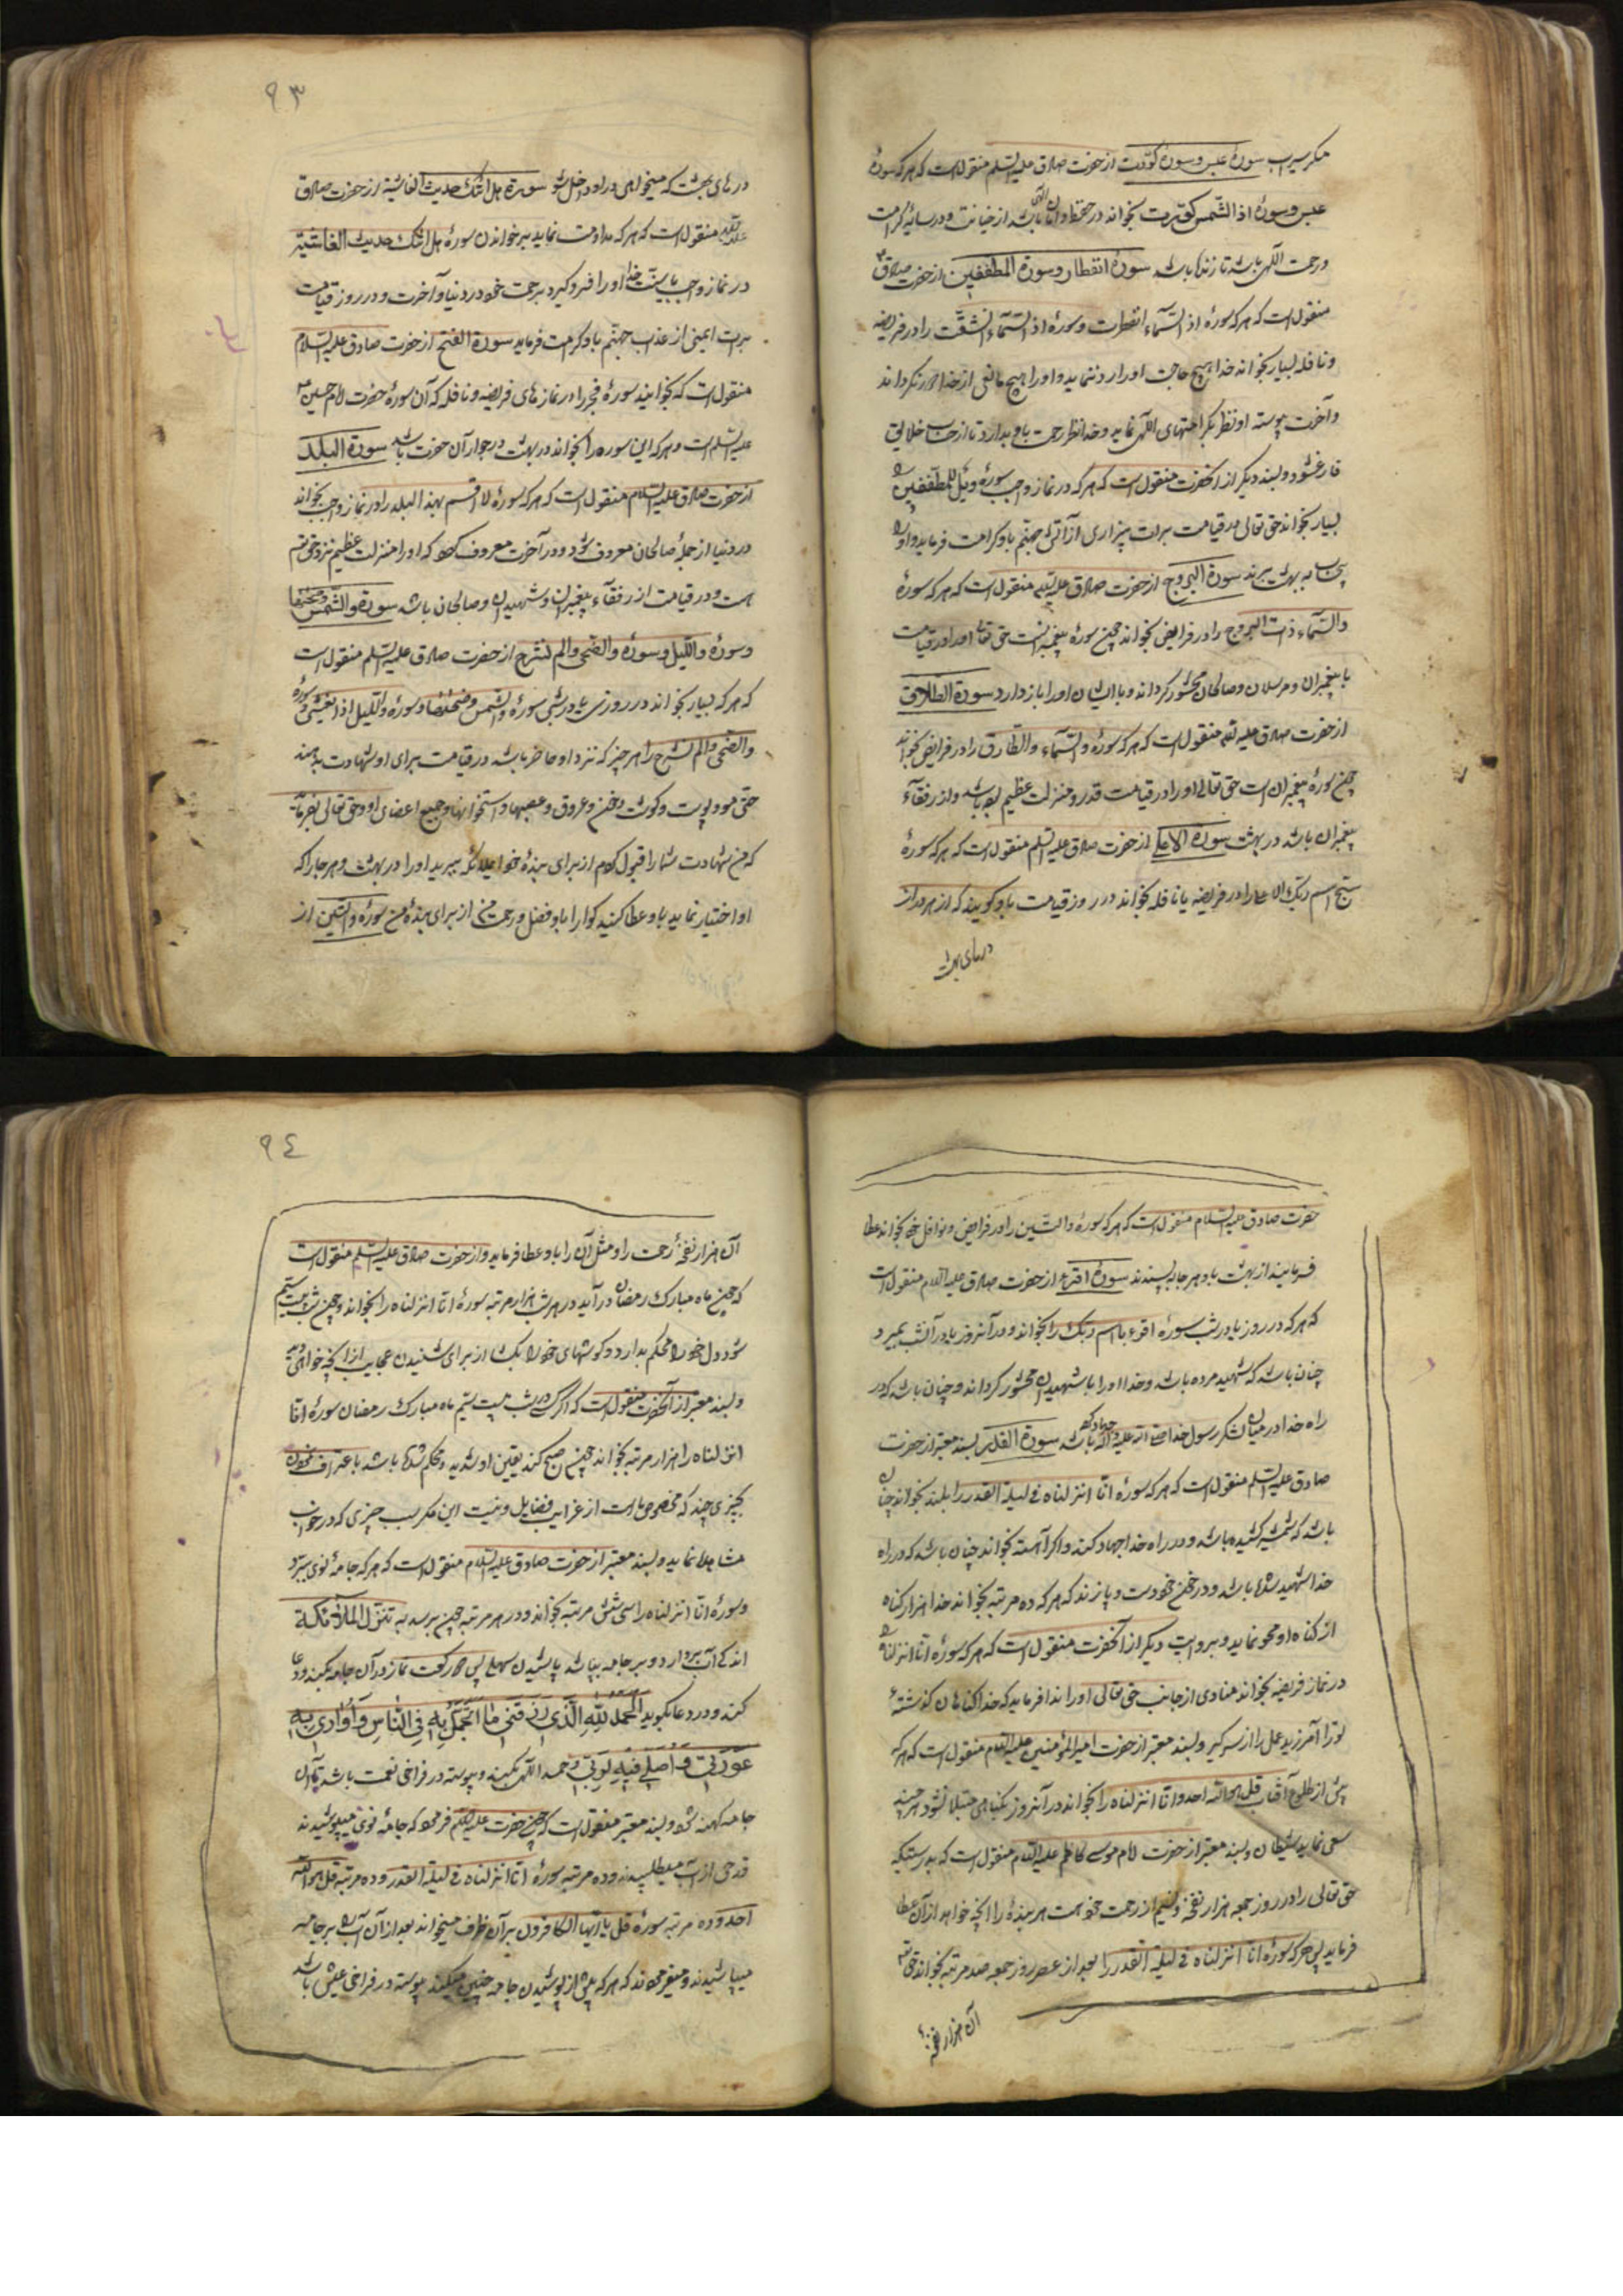 مکر سیراب سورهٔ عبس و سورهٔ کوّرت از حضرت صادق علیه السلم منقول است که هر که سورهٔ
عبس و سورهٔ اذا الشّمس کوّرت بخواند در حفظ و امان الهی باشد از خیانت و در سایهٔ کرامت
و رحمت الٰهی باشد تا زنده باشد سورهٔ انفطار و سورة المطففین از حضرت صادق ع
منقول است که هر که سورهٔ اذ السّماء انفطرت و سورهٔ اذ السّماء انشقّت را در فریضه
و نافله بسیار بخواند خدا هیچ حاجت او را رد ننماید و او را هیچ مانعی از خدا دور نکرداند
و آخرت پیوسته او نظر بکرامتهای الٰهی نماید و خدا نظر رحمت باو بدارد تا از حساب خلایق
فارغ شود و بسند دیکر از آنحضرت منقول است که هر که در نماز واجب سورهٔ ویل للمطففین را
بسیار بخواند حق تعالی در قیامت برات بیزاری از آتش جهنّم باو کرامت فرماید و او را
بیحساب به بهشت برند سورة البروج از حضرت صادق علیه السلم منقول است که هر که سورهٔ
والسّماء ذات البروج را در فرایض بخواند چون سورهٔ پیغمبرانست حق تعالی او را در قیامت
با پیغمبران و مرسلان و صالحان محشور کرداند و با ایشان او را باز دارد سورة الطارق
از حضرت صادق علیه السلم منقول است که هر که سورهٔ والسّماء والطارق را در فرایض بخواند
چون سورهٔ پیغمبران است حق تعالی او را در قیامت قدر و منزلت عظیم بوده باشد و از رفقآء
پیغمبران باشد در بهشت سورة الاعلی از حضرت صادق علیه السلم منقول است که هر که سورهٔ
سبّح اسم ربّک الاعلی را در فریضه یا نافله بخواند در روز قیامت باو کویند که از هر در از
درهای بهشت
۹۳
درهای بهشت که میخواهی در او داخل شو سورة هل اتٰک حدیث الغاشیة از حضرت صادق
علیه السلم منقول است که هر که مداومت نماید بر خواندن سورهٔ هل اتٰک حدیث الغاشیة
در نماز واجب یا سنّت خدا او را فرو کیرد برحمت خود در دنیا و آخرت و در روز قیامت
برات ایمنی از عذاب جهنّم باو کرامت فرماید سورة الفتح از حضرت صادق علیه السّلام
منقول است که بخوانید سورهٔ فجر را در نمازهای فریضه و نافله که آن سورهٔ حضرت امام حسین ع
علیه السلم است و هر که این سوره را بخواند در بهشت در جوار آن حضرت باشد سورة البلد
از حضرت صادق علیه السلام منقول است که هر که سورهٔ لا اقسم بهذا البلد را در نماز واجب بخواند
در دنیا از جملهٔ صالحان معروف شود و در آخرت معروف کردد که او را منزلت عظیم نزد حق تع
هست و در قیامت از رفقآء پیغمبران و شهیدان و صالحان باشد سورة والشّمس وضحیٰها
و سورهٔ واللیل و سورهٔ والضحی والم نشرح از حضرت صادق علیه السلم منقول است
که هر که بسیار بخواند در روزی یا در شبی سورهٔ والشمس وضحیٰها و سورهٔ واللیل اذا یغشی و سورهٔ
والضحی والم نشرح را هر چیز که نزد او حاضر باشد در قیامت برای او شهادت بدهند
حتی مو و پوست و کوشت و خون و عروق و عصبها و استخوانها و جمیع اعضای او و حق تعالی بفرماید
که من شهادت شما را قبول کردم از برای بندهٔ خود ای ملائکه ببرید او را در بهشت و هر جا را که
او اختیار نماید باو عطا کنید کوارا باد فضل و رحمت من از برای بندهٔ من سورهٔ والتین از
حضرت صادق علیه السلام منقول است که هر که سورهٔ والتّین را در فرایض و نوافل خود بخواند عطا
فرمایند از بهشت باو هر جا بپسندد سورهٔ اقرء از حضرت صادق علیه السلام منقول است
که هر که در روز یا در شب سورهٔ اقرء باسم ربّک را بخواند و در آنروز یا در آنشب بمیرد
چنان باشد که شهید مرده باشد و خدا او را با شهیدان محشور کرداند و چنان باشد که در
راه خدا در میان لشکر رسول خدا صلی الله علیه و آله جهاد کرده باشد سورة القدر بسند معتبر از حضرت
صادق علیه السلم منقول است که هر که سورهٔ انّا انزلناه فی لیلة القدر را بلند بخواند چنان
باشد که شمشیر کشیده باشد و در راه خدا جهاد کند و اکر آهسته بخواند چنان باشد که در راه
خدا شهید شده باشد و در خون خود دست و پا زند که هر که ده مرتبه بخواند خدا هزار کناه
از کناه او محو نماید و بروایت دیکر از آنحضرت منقول است که هر که سورهٔ انّا انزلناه را
در نماز فریضه بخواند منادی از جانب حق تعالی او را ندا فرماید که خدا کناهان کذشتهٔ
تو را آمرزید عمل را از سر کیر و بسند معتبر از حضرت امیر المؤمنین علیه السلام منقول است که هر که
پیش از طلوع آفتاب قل هو الله احد و انّا انزلناه را بخواند در آنروز بکناهی مبتلا نشود هر چند
سعی نماید شیطان و بسند معتبر از حضرت امام موسی کاظم علیه السلام منقول است که بدرستیکه
حق تعالی را در روز جمعه هزار نفخه و نسیم از رحمت خود هست هر بندهٔ را آنچه خواهد از آن عطا
فرماید پس هر که سورهٔ انّا انزلناه فی لیلة القدر را بعد از عصر روز جمعه صد مرتبه بخواند حق تع
آن هزار نفخهٔ
۹٤
آن هزار نفخهٔ رحمت را و مثل آن را باو عطا فرماید و از حضرت صادق علیه السلم منقول است
که چون ماه مبارک رمضان در آید در هر شب هزار مرتبه سورهٔ انّا انزلناه را بخواند و چون شب بیست سیّم
شود دل خود را محکم بدارد و کوشهای خود را بکشا از برای شنیدن عجایب از آنچه خواهی دید
و بسند معتبر از آنحضرت منقول است که اکر کسی در شب بیست سیّم ماه مبارک رمضان سورهٔ انّا
انزلناه را هزار مرتبه بخواند چون صبح کند یقین او شدید و محکم شده باشد باعتراف نمودن
بچیزی چند که مخصوص ماست از غرایب فضایل و نیست این مکر بسبب چیزی که در خواب
مشاهده نماید و بسند معتبر از حضرت صادق علیه السّلام منقول است که هر که جامهٔ نوی ببرّد
و سورهٔ انّا انزلناه را سی شش مرتبه بخواند و در هر مرتبه چون برسد به تنزّل الملآئکة
اندکی آب بردارد و بر جامه بپاشد پاشیدن سهلی پس دو رکعت نماز در آن جامه بکند و دعا
کند و در دعا بگوید الحمد لله الّذی رزقنی ما اتجمّل به فی الناس و اواری به
عورتی و اصلی فیه لربّی و حمد الٰهی بکند و پیوسته در فراخی نعمت باشد تا آن
جامه کهنه شود و بسند معتبر منقول است که چون حضرت علیه السلم فرمود که جامهٔ نوی میپوشیدند
قدحی از آب میطلبیدند و ده مرتبه سورهٔ انّا انزلناه فی لیلة القدر و ده مرتبه قل هو الله
احد و ده مرتبه سورهٔ قل یا ایّها الکافرون بر آن ظرف میخواند بعد از آن آب را بر جامه
میپاشیدند و میفرمودند که هر که پیش از پوشیدن جامه چنین میکند پیوسته در فراخی عیش باشد